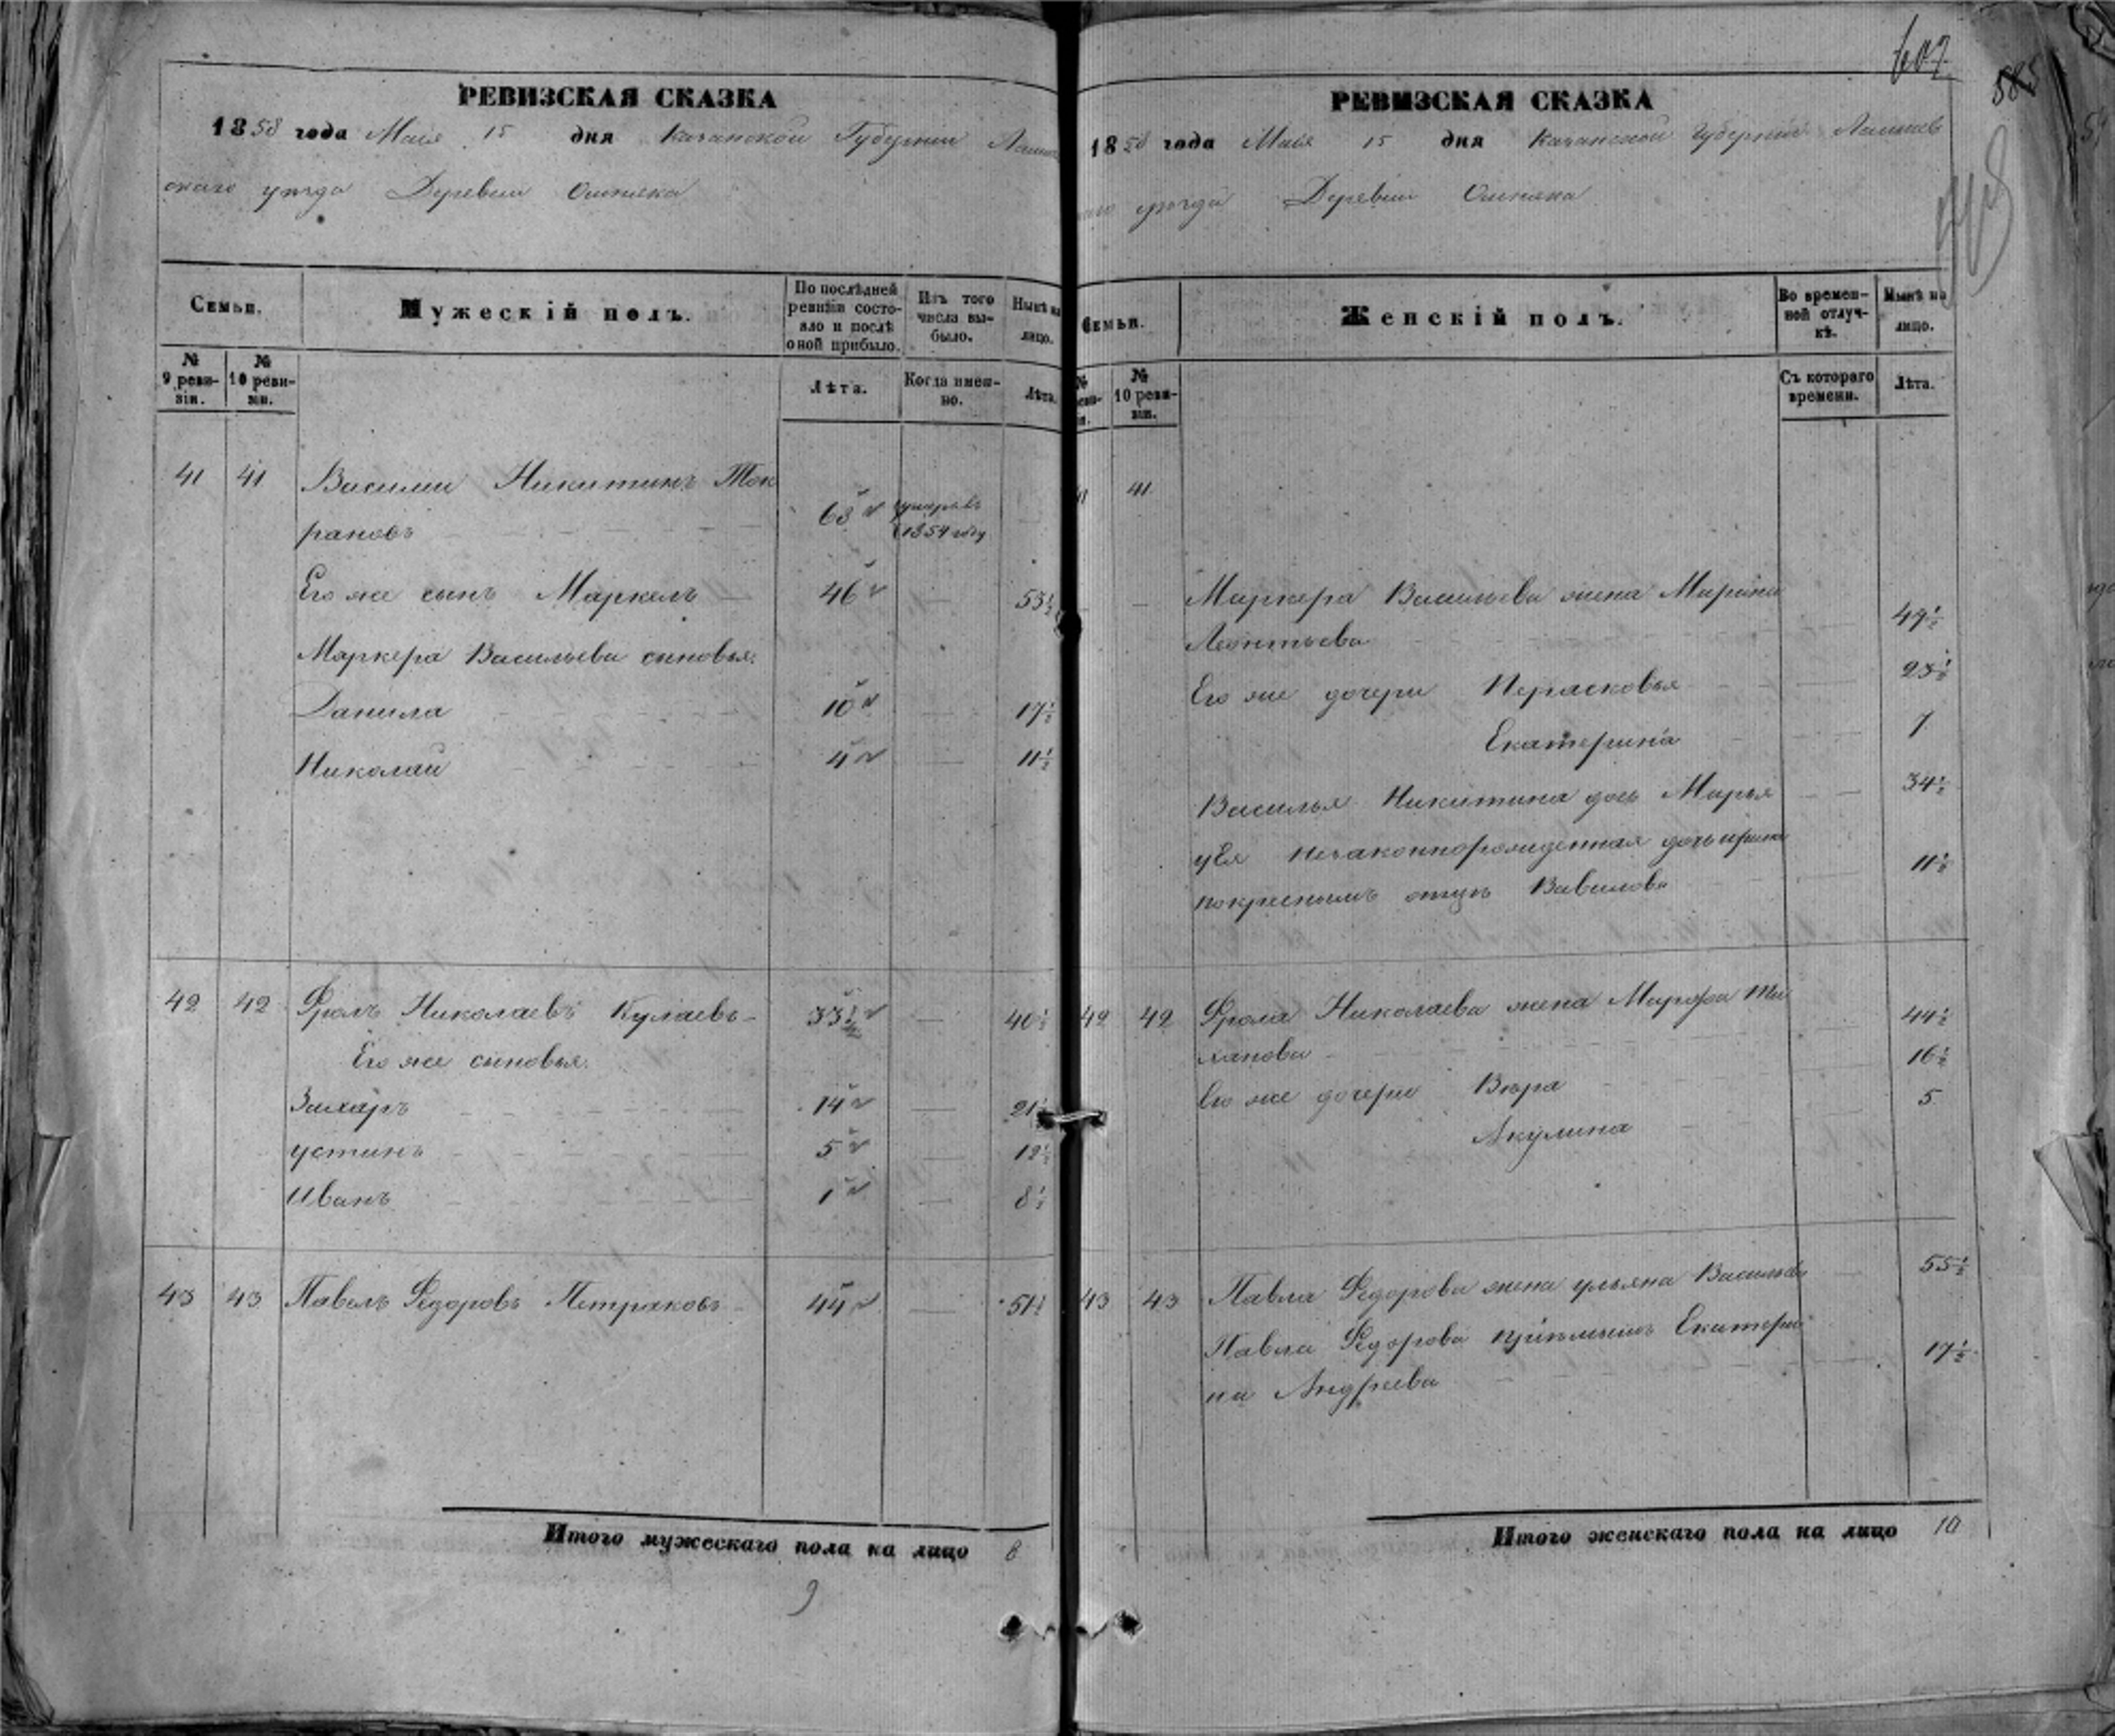 607.
585
РЕВИЗСКАЯ СКАЗКА
1858 года Маія 15 дня Казанской Губерніи Лаишев
скаго уезда Деревни Ошняка
Семьи.
Мужескій полъ.
По послѣдней ревизіи состояло и послѣ оной прибыло.
Изъ того числа выбыло.
Нынѣ на лицо.
№ 9 ревизіи.
№ 10 ревизіи.
Лѣта.
Когда именно.
Лѣта.
41 41 Василии Никитинъ Ток
рановъ 63 умеръ въ 1854 году
Его же сынъ Маркелъ 46 — 53½
Маркера Васильева сыновья:
Данила 10 — 17½
Николаи 4 — 11½
42 42 Фролъ Николаевъ Кулаевъ 33½ — 40½
Его же сыновья.
Захаръ 14 — 21½
устинъ 5 — 12½
Иванъ 1 — 8½
43 43 Павелъ Федоровъ Петряковъ 44 — 51½
Итого мужескаго пола на лицо 8
9
РЕВИЗСКАЯ СКАЗКА
1858 года Маія 15 дня Казанской Губерніи Лаишев
скаго уезда Деревни Ошняка
Семьи.
Женскій полъ.
Во временной отлучкѣ.
Нынѣ на лицо.
№ 10 ревизіи.
Съ котораго времени.
Лѣта.
41
Маркера Васильева жена Марина
Леонтьева 49½
Его же дочери Перасковья 23½
Екатерина 7
Василья Никитина дочь Марья 34½
уея незаконнорожденная дочь ирина
покрестномъ отцѣ Вавилова 11½
42 42 Фрола Николаева жена Марфа Ти
ханова 44½
Его же дочери Вѣра 16½
Акулина 5
43 43 Павла Федорова жена ульяна Васильева 55½
Павла Федорова пріемышъ Екатери
на Андреева 17½
Итого женскаго пола на лицо 10